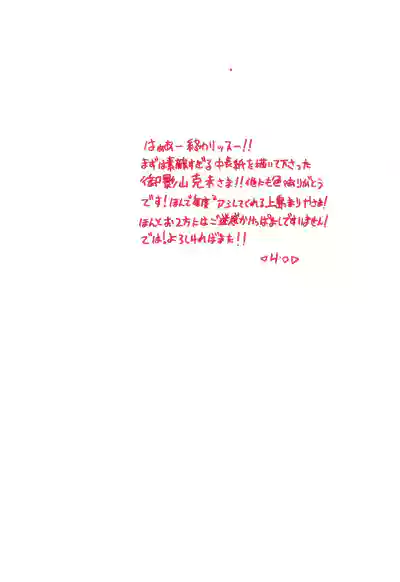 はぁぁー終わりッスー!!
まずは素敵すぎる中表紙を描いて下さった
御影山克木さま!!他にも色々ありがとう
です!ほんで毎度²アシしてくれる上島まりやさま!
ほんとお2方にはご迷惑かけっぱなしですいません!
では!よろしければまた!!